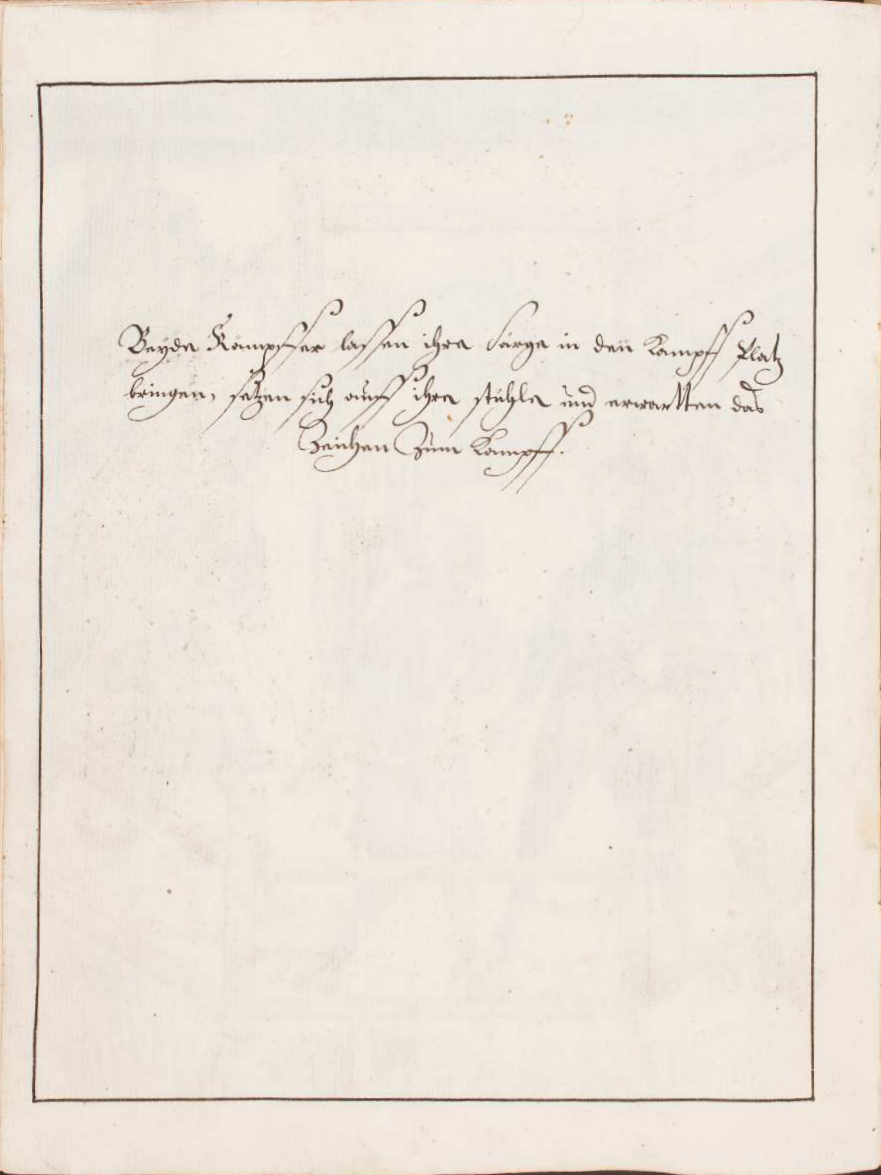 Beyde Kämpffer lassen ihre Särge in den Kampff Platz
bringen, setzen sich auff ihre stühle und erwartten das
Zeichen Zum Kampff.